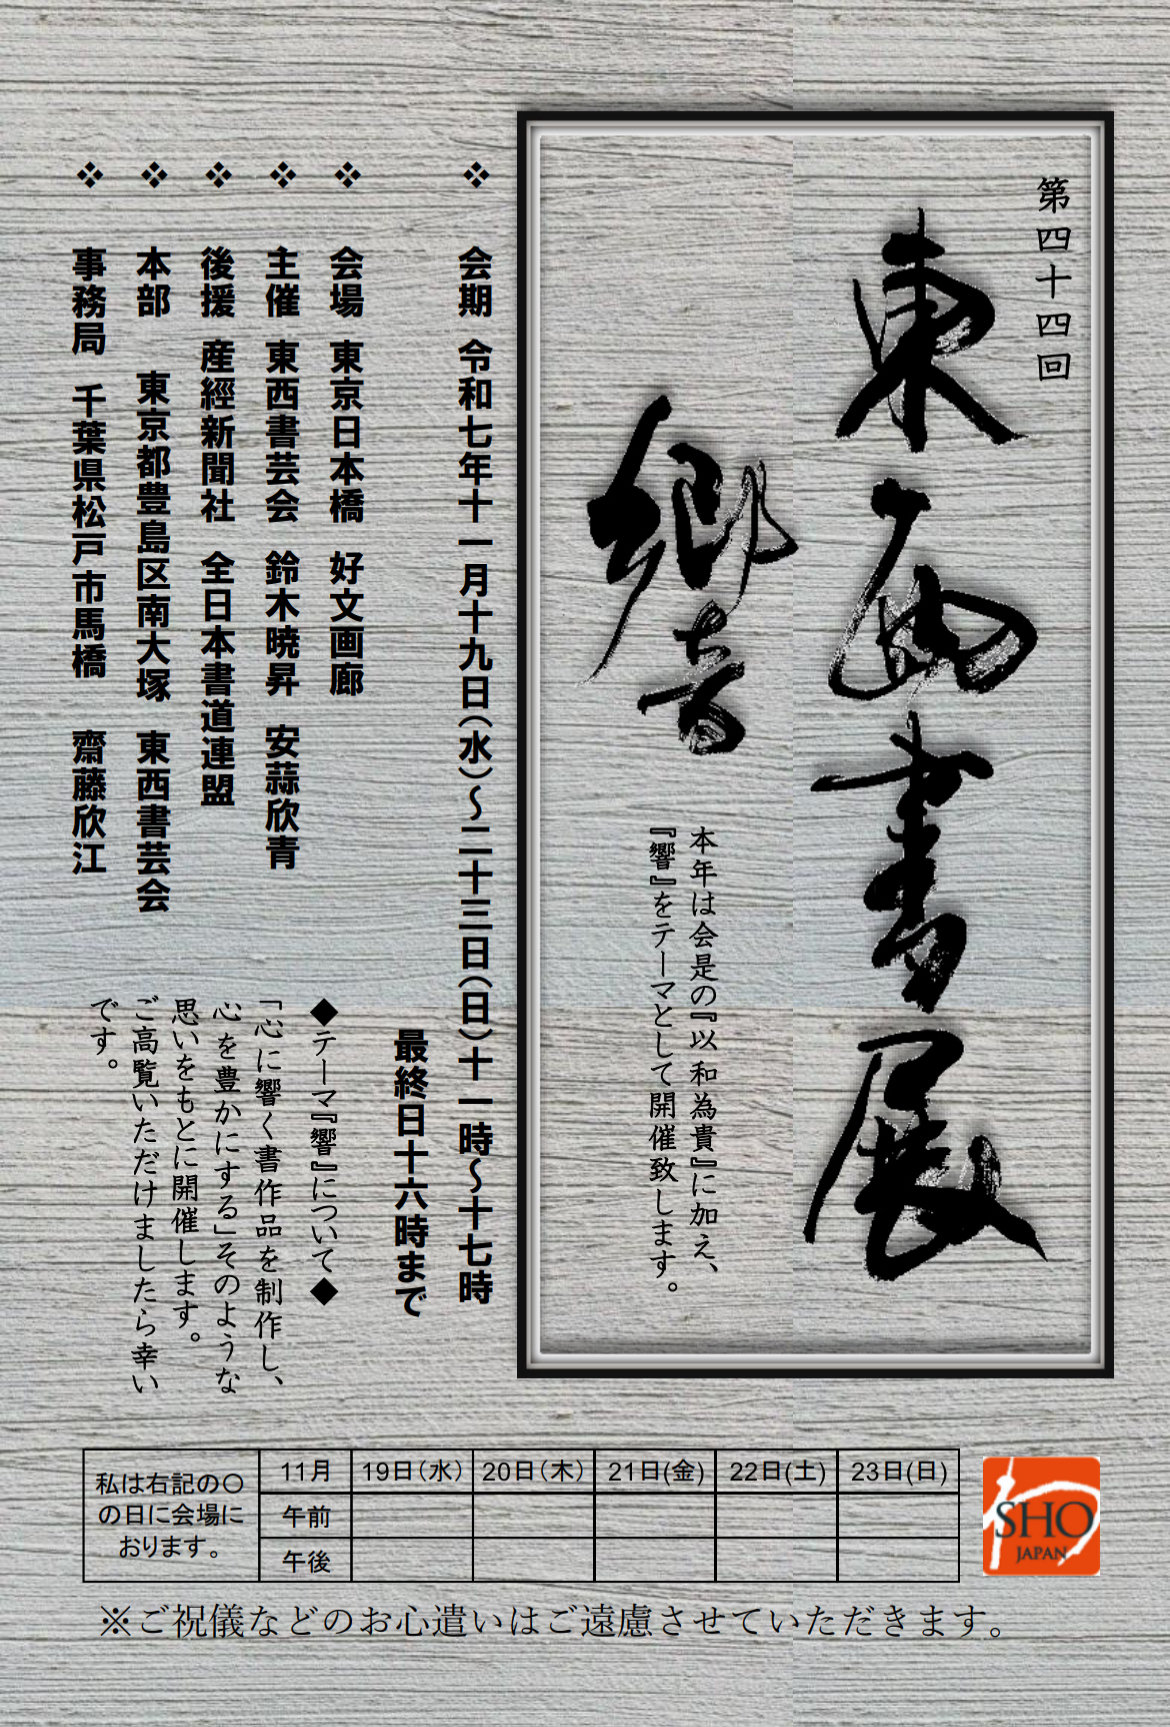 第四十四回
東西書展
響
本年は会是の『以和為貴』に加え、
『響』をテーマとして開催致します。
❖ 会期 令和七年十一月十九日(水)～二十三日(日)十一時～十七時
最終日十六時まで
❖ 会場 東京日本橋 好文画廊
❖ 主催 東西書芸会 鈴木暁昇 安蒜欣青
❖ 後援 産經新聞社 全日本書道連盟
❖ 本部 東京都豊島区南大塚 東西書芸会
❖ 事務局 千葉県松戸市馬橋 齋藤欣江
◆テーマ『響』について◆
「心に響く書作品を制作し、
心を豊かにする」そのような
思いをもとに開催します。
ご高覧いただけましたら幸い
です。
私は右記の〇
の日に会場に
おります。
11月 19日(水) 20日(木) 21日(金) 22日(土) 23日(日)
午前
午後
SHO
JAPAN
※ご祝儀などのお心遣いはご遠慮させていただきます。